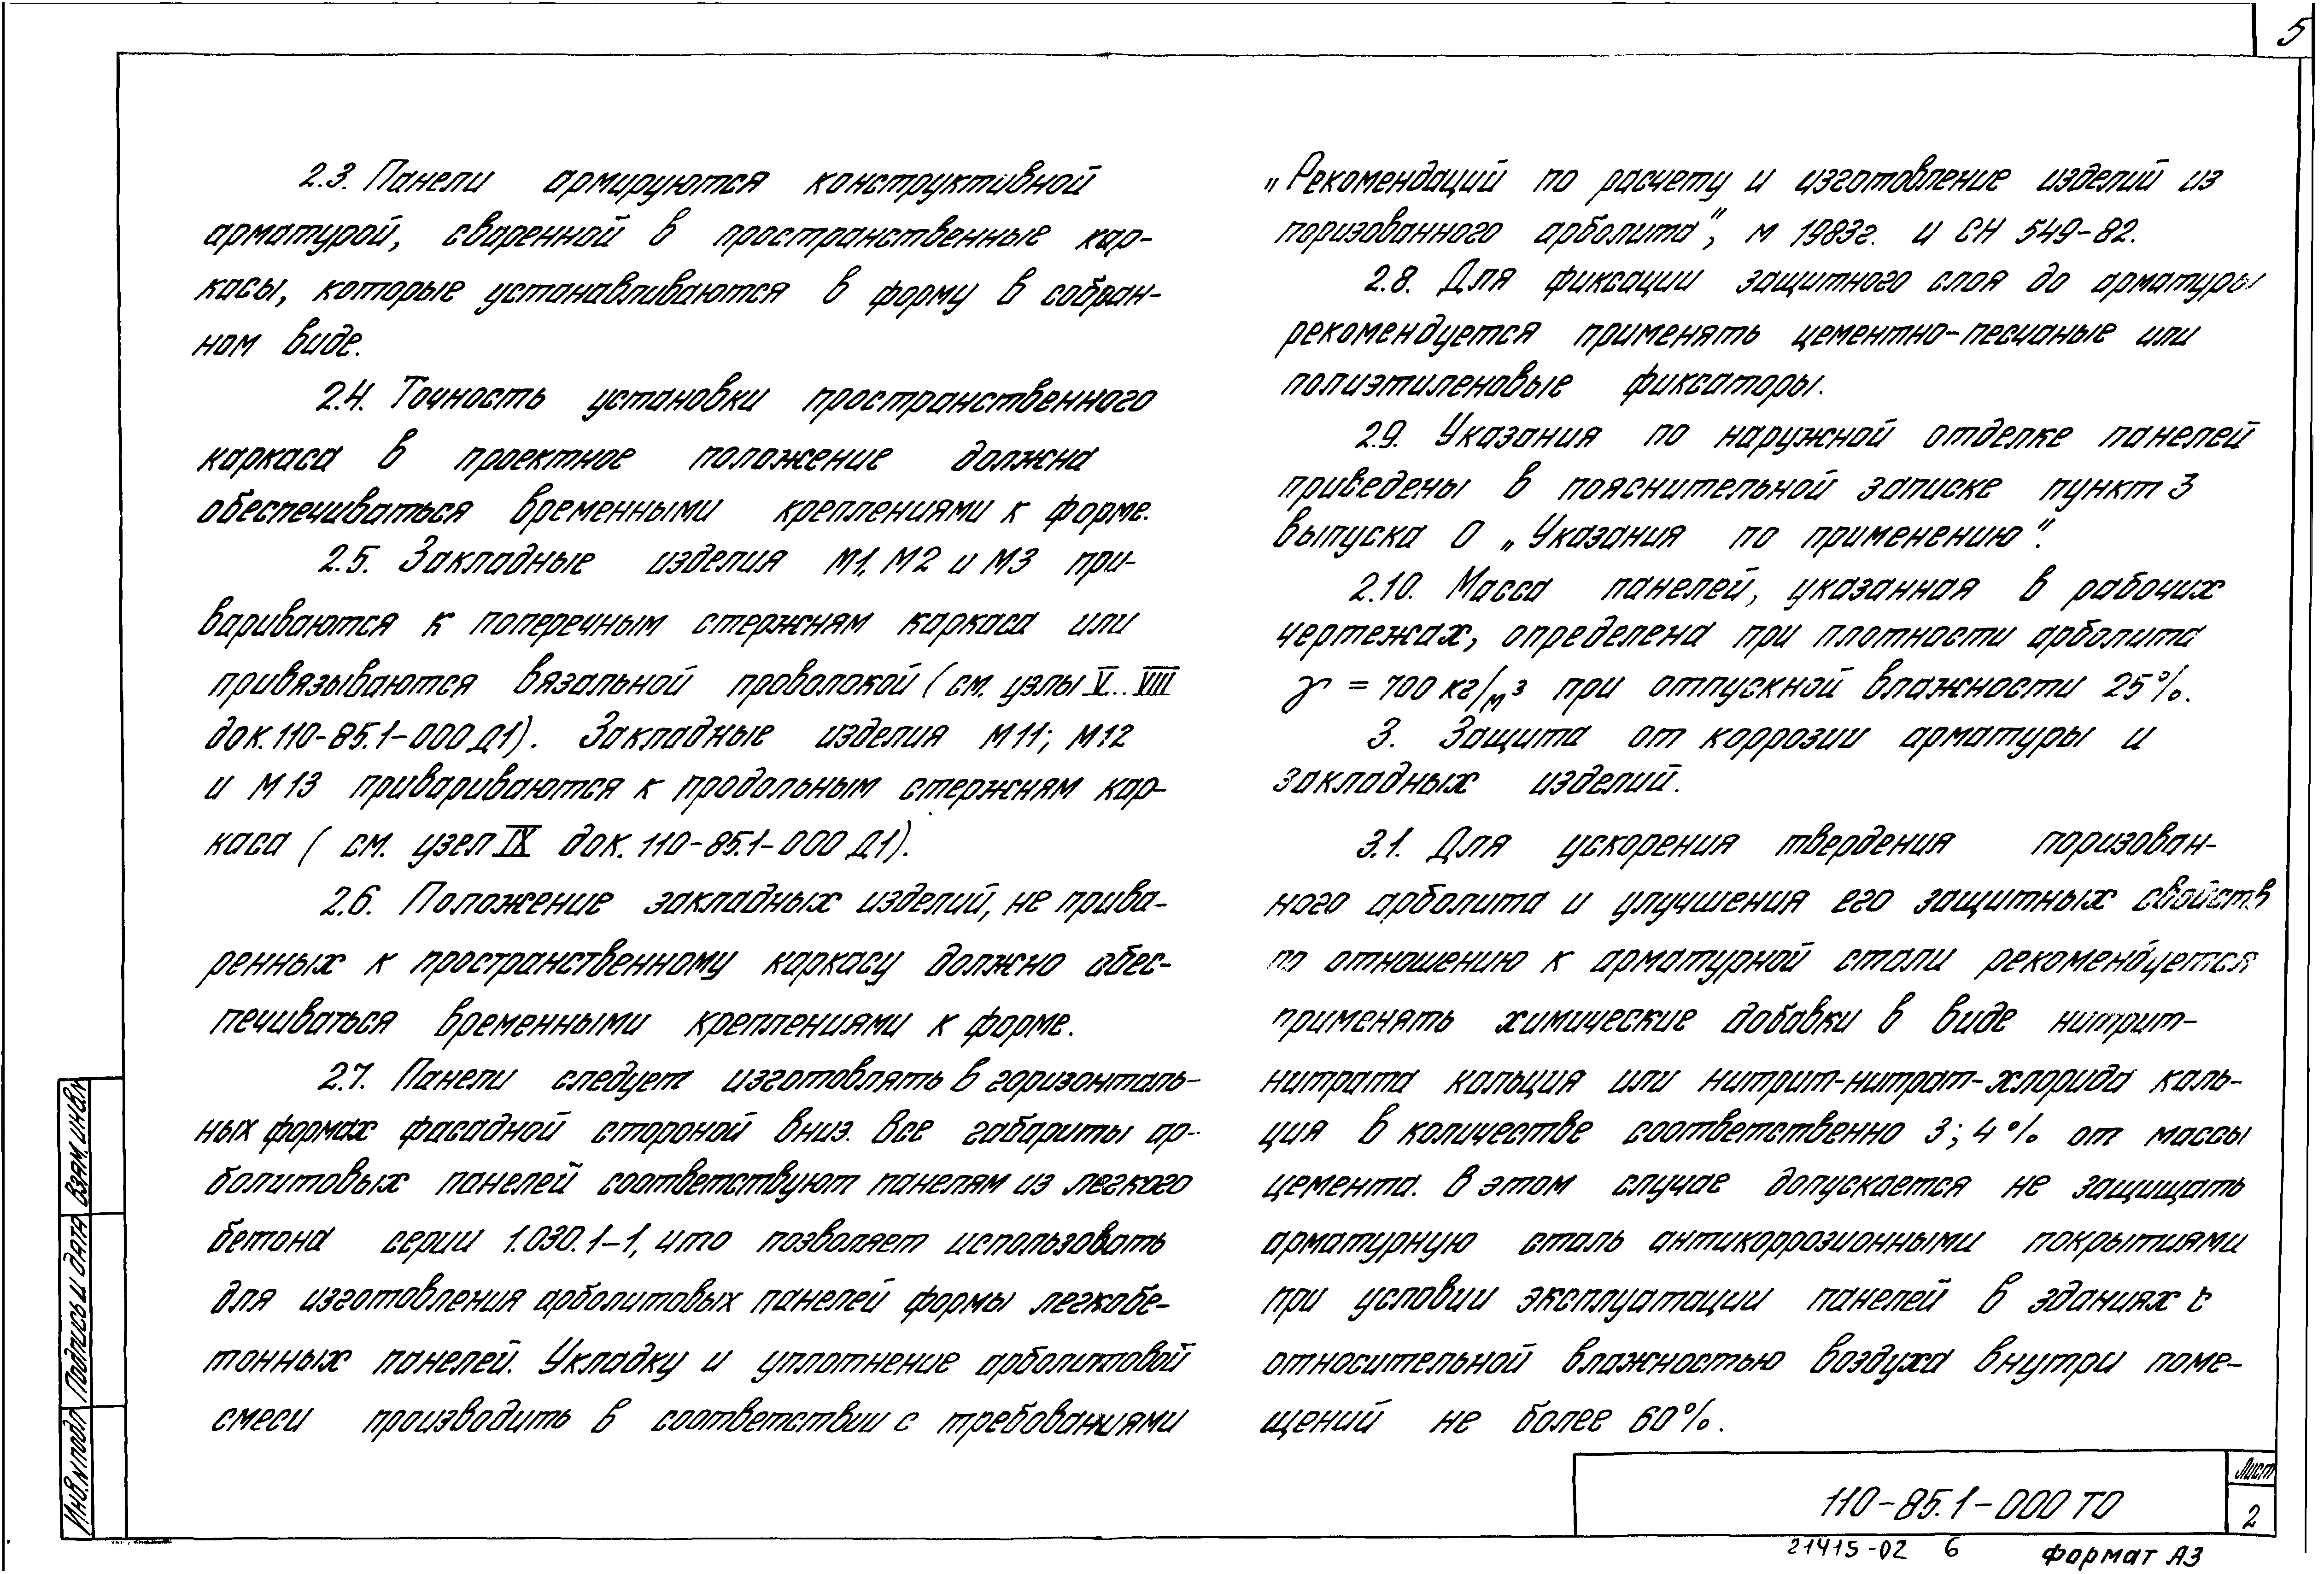 5
2.3. Панели армируются конструктивной
арматурой, сваренной в пространственные кар-
касы, которые устанавливаются в форму в собран-
ном виде.
2.4. Точность установки пространственного
каркаса в проектное положение должна
обеспечиваться временными креплениями к форме.
2.5. Закладные изделия М1, М2 и М3 при-
вариваются к поперечным стержням каркаса или
привязываются вязальной проволокой (см. узлы V..VIII
док.110-85.1-000Д1). Закладные изделия М11; М12
и М13 привариваются к продольным стержням кар-
каса ( см. узел IX док. 110-85.1-000 Д1).
2.6. Положение закладных изделий, не прива-
ренных к пространственному каркасу должно обес-
печиваться временными креплениями к форме.
2.7. Панели следует изготовлять в горизонталь-
ных формах фасадной стороной вниз. Все габариты ар-
болитовых панелей соответствуют панелям из легкого
бетона серии 1.030.1-1, что позволяет использовать
для изготовления арболитовых панелей формы легкобе-
тонных панелей. Укладку и уплотнение арболитовой
смеси производить в соответствии с требованиями
„Рекомендаций по расчету и изготовление изделий из
поризованного арболита", м 1983г. и СН 549-82.
2.8. Для фиксации защитного слоя до арматуры
рекомендуется применять цементно-песчаные или
полиэтиленовые фиксаторы.
2.9. Указания по наружной отделке панелей
приведены в пояснительной записке пункт 3
выпуска 0 „Указания по применению".
2.10. Масса панелей, указанная в рабочих
чертежах, определена при плотности арболита
γ = 700 кг/м³ при отпускной влажности 25%.
3. Защита от коррозии арматуры и
закладных изделий.
3.1. Для ускорения твердения поризован-
ного арболита и улучшения его защитных свойств
по отношению к арматурной стали рекомендуется
применять химические добавки в виде нитрит-
нитрата кальция или нитрит-нитрат-хлорида каль-
ция в количестве соответственно 3; 4% от массы
цемента. В этом случае допускается не защищать
арматурную сталь антикоррозионными покрытиями
при условии эксплуатации панелей в зданиях с
относительной влажностью воздуха внутри поме-
щений не более 60%.
Инв.N подл Подпись и дата Взам.инв.N
110-85.1-000 ТО
Лист
2
21415-02 6
Формат А3